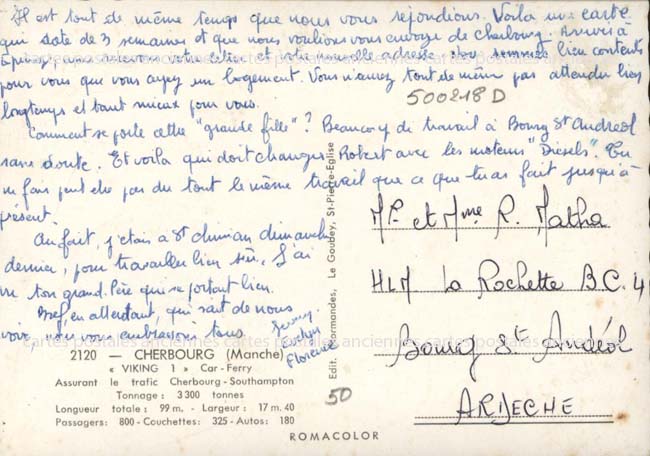 Il est tout de même temps que nous vous répondions. Voilà une carte
qui date de 3 semaines et que nous voulions vous envoyer de Cherbourg. Arrivés à
avons votre lettre et votre nouvelle adresse. Nous sommes bien contents
pour vous que vous ayez un logement. Vous n'aurez tout de même pas attendu bien
longtemps et tant mieux pour vous.
500218 D
Comment se porte cette "grande fille"? Beaucoup de travail à Bourg St Andréol
sans doute. Et voilà qui doit changer Robert avec les moteurs "Diesels". Tu
ne fais peut être pas du tout le même travail que ce que tu as fait jusqu'à
présent.
Au fait, j'étais à St Chinian dimanche
dernier, pour travailler bien sûr. J'ai
vu ton grand-Père qui se portait bien.
Bref, en attendant, qui sait de nous
voir, vous embrassons tous.
Florence
Mr. et Mme R. Matha
HLM La Rochette B.C. 4
Bourg St Andéol
ARDECHE
2120 — CHERBOURG (Manche)
« VIKING 1 » Car-Ferry
Assurant le trafic Cherbourg-Southampton
Tonnage : 3 300 tonnes
Longueur totale : 99 m. - Largeur : 17 m. 40
Passagers: 800 - Couchettes: 325 - Autos: 180
Edit. Normandes, Le Goubey, St-Pierre-Eglise
50
ROMACOLOR
cartes postales anciennes cartes postales anciennes